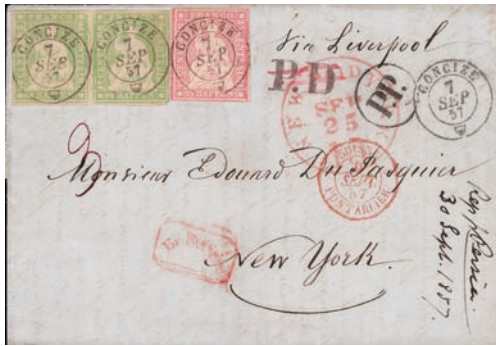 CONCIZE
7
SEP
57
CONCIZE
7
SEP
57
CONCIZE
7
SEP
57
Via Liverpool
P.D
P.P.
CONCIZE
7
SEP
57
NEW
SEP
25
SUISSE
PONTARLIER
Monsieur Edouard Du Pasquier
New York.
30 Sept. 1857.